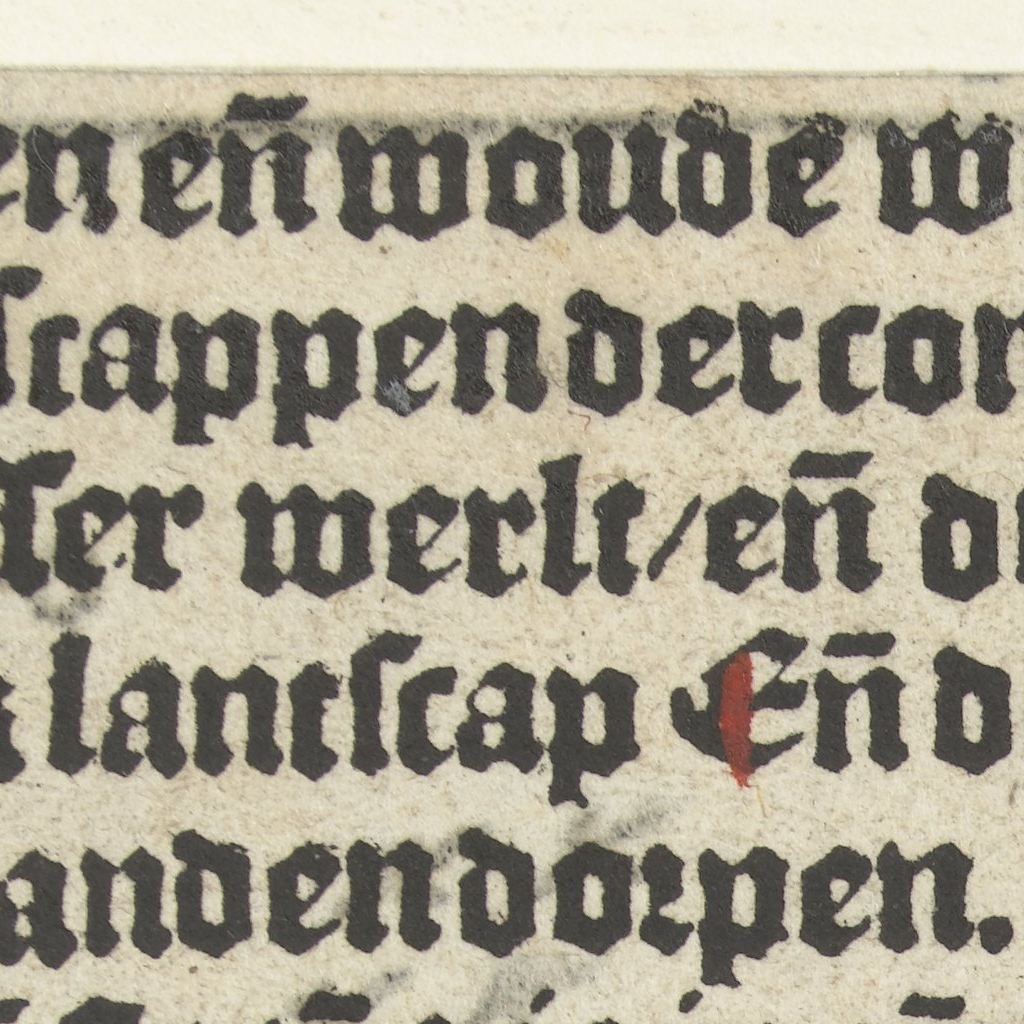 en eñ woude w
ſcappen der con
ſer werlt/eñ d
lantſcap Eñ d
anden doꝛpen.